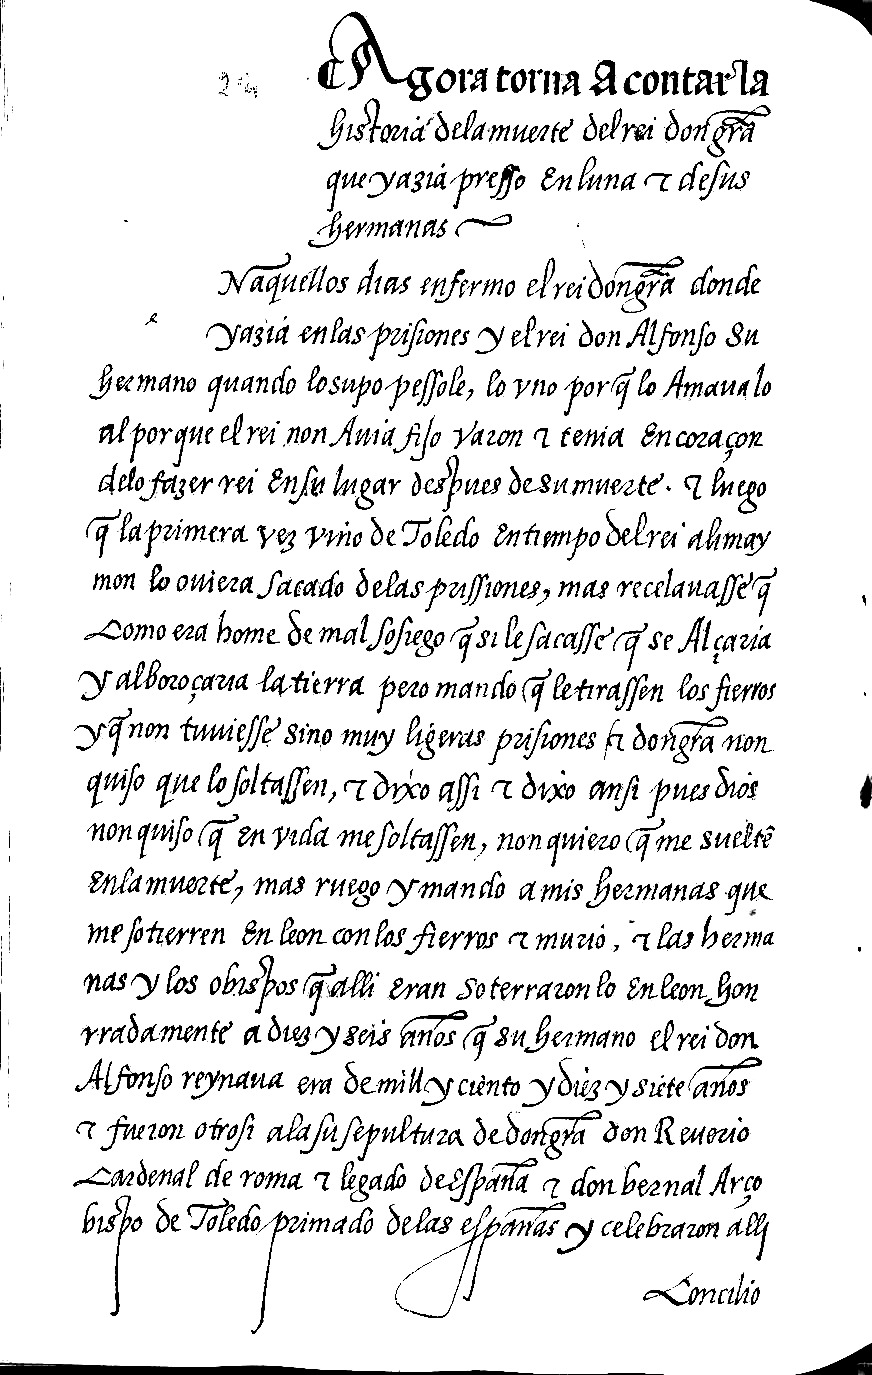 Agora torna A contar la
historia dela muerte del rei don gr̃a
que yazia presso En luna τ de sus
hermanas
Naquellos dias enfermo el rei don gr̃a donde
yazia en las prisiones y el rei don Alfonso su
hermano quando lo supo pessole, lo vno por q̃ lo Amaua lo
al por que el rei non Auia fijo varon τ tenia En coraçon
delo fazer rei En su lugar despues de su muerte. τ luego
q̃ la primera vez vino de Toledo En tiempo del rei alimay
mon lo ouiera sacado de las prissiones, mas recelauasse q̃
Como era home de mal sosiego q̃ si le sacasse q̃ se Alçaria
y alboroçaria la tierra pero mando q̃ le tirassen los fierros
y q̃ non tuuiesse sino muy ligeras prisiones τ don gr̃a non
quiso que lo soltassen, τ dixo assi τ dixo ansi pues dios
non quiso q̃ en vida me soltassen, non quiero q̃ me suelte
En la muerte, mas ruego y mando a mis hermanas que
me sotierren En leon con los fierros τ murio, τ las herma
nas y los obispos q̃ alli Eran soterraron lo En leon hon
rradamente a diez y seis años q̃ su hermano el rei don
Alfonso reynaua era de mill y ciento y diez y siete años
τ fueron otrosi a la su sepultura de don gr̃a don Reuerio
Cardenal de roma τ legado de España τ don bernal Arço
bispo de Toledo primado de las españas y celebraron alli
Concilio